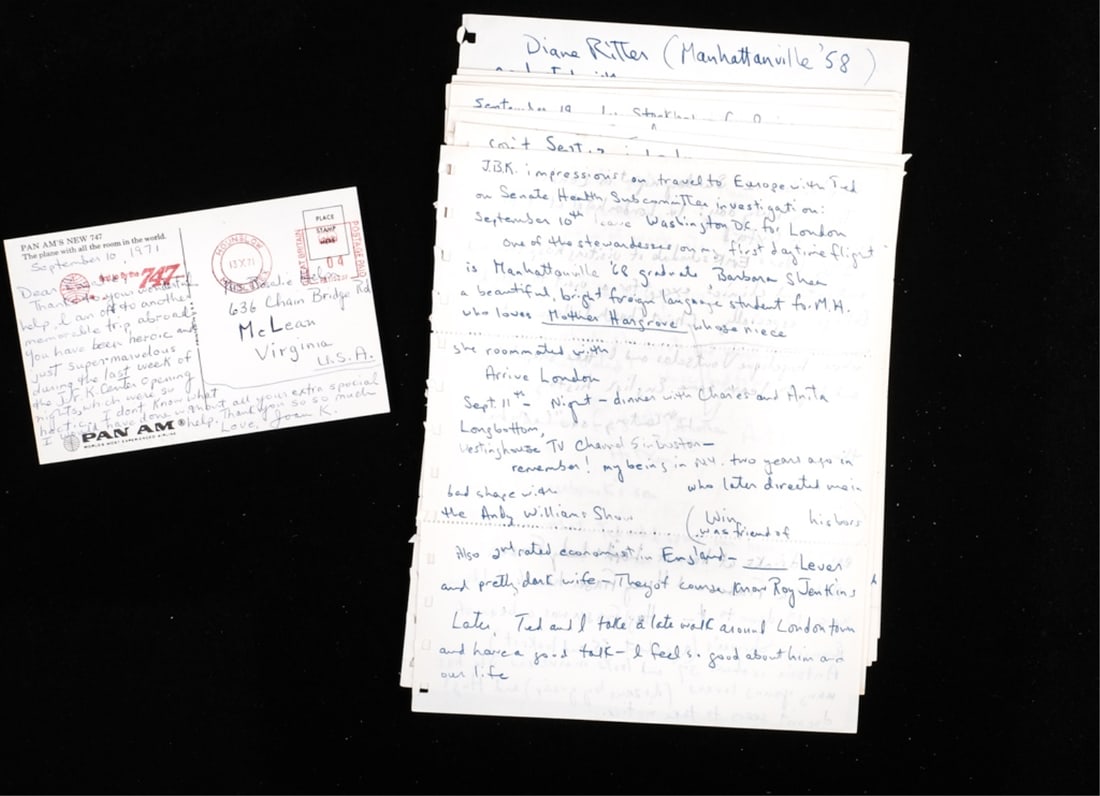 PAN AM'S NEW 747
The plane with all the room in the world.
September 10, 1971
Dear
Thanks to your wonderful
help, I am off to another
memorable trip abroad
you have been heroic and
just super marvelous
during the last week of
the J.F.K. Center opening
nights, which were so
hectic. I dont know what
I would have done without all your extra special
help. Thank you so so much
Love, Joan K.
PAN AM
WORLD'S MOST EXPERIENCED AIRLINE
747
HOUNSLOW
13 X 71
PLACE
STAMP
HERE
GREAT BRITAIN
04
POSTAGE PAID
Mrs. Rosalie
636 Chain Bridge Rd
McLean
Virginia
U.S.A.
Diane Ritter (Manhattanville '58)
con't Sept.
J.B.K. impressions on travel to Europe with Ted
on Senate Health Subcommittee investigation:
September 10th leave Washington D.C. for London
One of the stewardesses on my first daytime flight
is Manhattanville '68 graduate, Barbara Shea
a beautiful, bright foreign language student for M.H.
who loves Mother Hargrove, whose niece
she roommated with
Arrive London
Sept. 11th - Night - dinner with Charles and Anita
Longbottom,
Westinghouse TV Channel 5 in Boston -
remember! my being in N.Y. two years ago in
bad shape with who later directed me in
the Andy Williams Show
(Win was friend of his)
Also 2nd rated economist in England - Lever
and pretty dark wife - They of course know Roy Jenkins
Later, Ted and I take a late walk around London town
and have a good talk - I feel so good about him and
our life